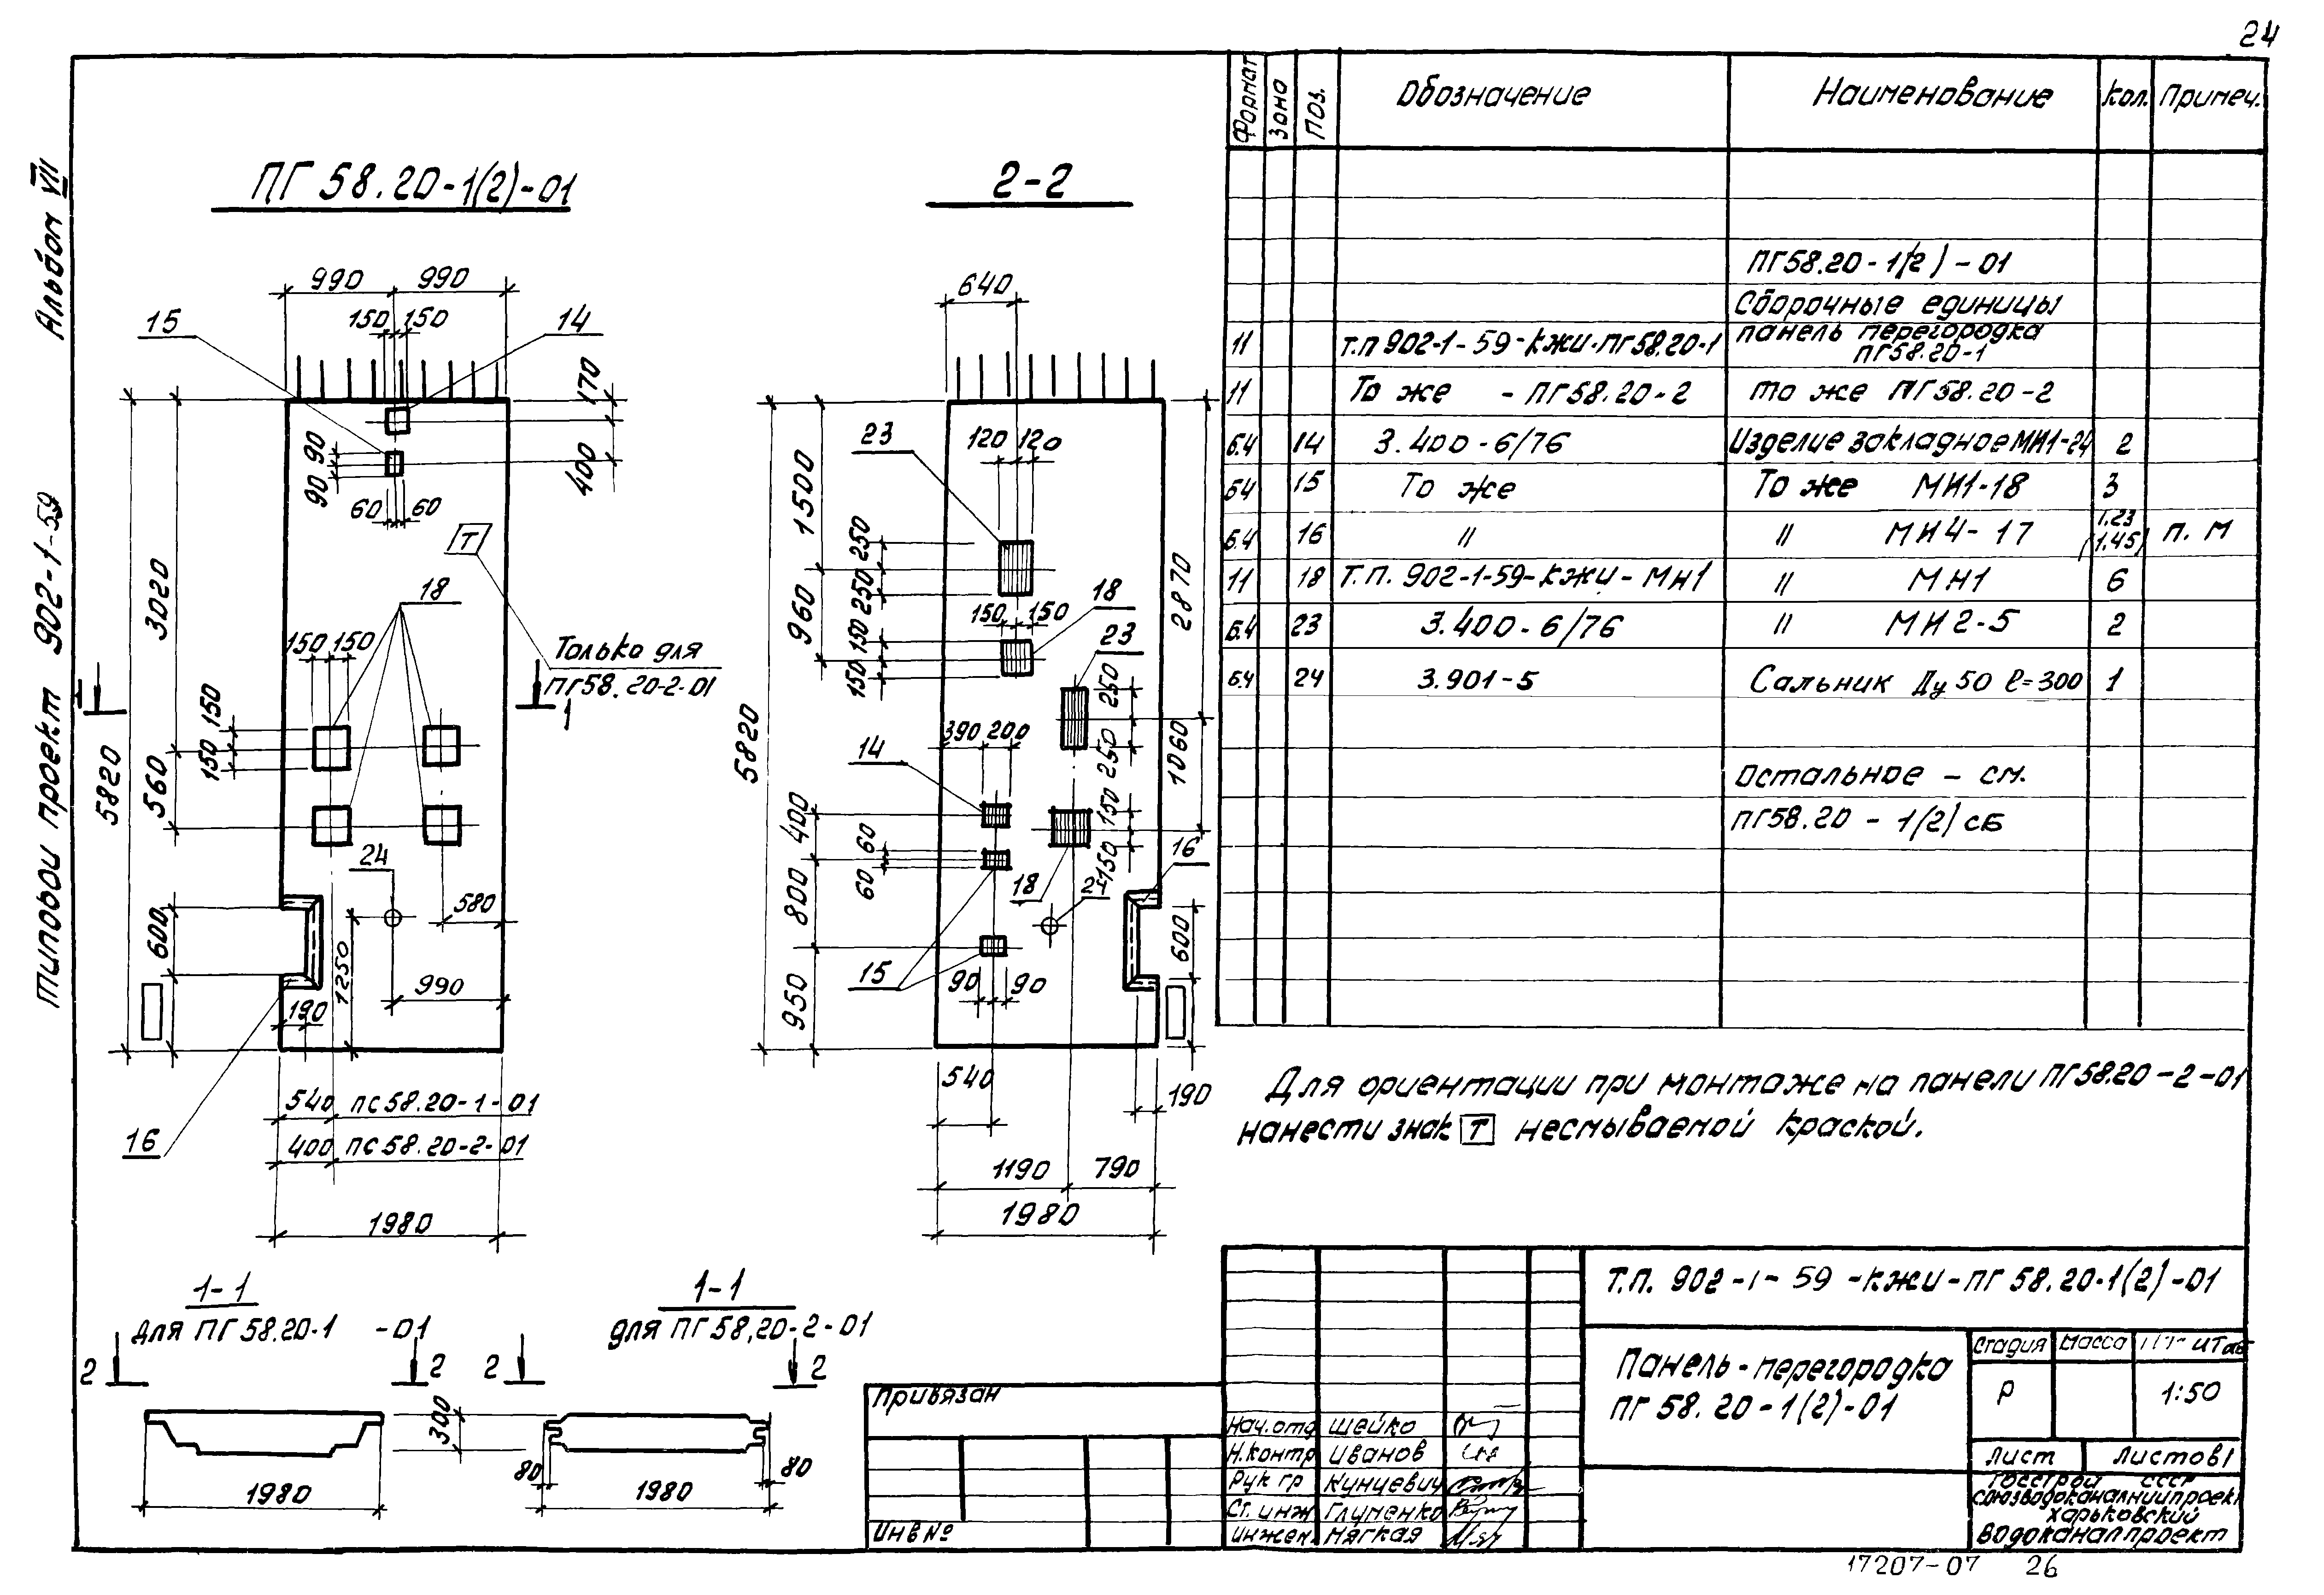 24
Альбом VII
Типовой проект 902-1-59
ПГ 58.20-1(2)-01
990 990
150 150
15
14
170
400
90 90
60 60
Т
3020
5820
18
150 150
Только для
ПГ58.20-2-01
1
1
150 150
560
24
580
600
1250
990
190
540 ПС58.20-1-01
400 ПС58.20-2-01
16
1980
2-2
640
23
120 120
1500
250 250
960
150 150
18
150 150
23
2870
250 250
5820
390 200
14
1060
400
60 60
150 150
16
18
24
800
600
15
90 90
950
540
190
1190 790
1980
1-1
для ПГ58.20-1 -01
2 2
300
1980
1-1
для ПГ58,20-2-01
2 2
80 80
1980
Формат Зона Поз. Обозначение Наименование Кол. Примеч.
ПГ58.20-1(2)-01
Сборочные единицы
11 Т.П 902-1-59-КЖИ-ПГ58.20-1 Панель перегородка
ПГ58.20-1
11 То же - ПГ58.20-2 То же ПГ58.20-2
Б.4 14 3.400-6/76 Изделие закладное МИ1-24 2
Б4 15 То же То же МИ1-18 3
Б.4 16 " " МИ4-17 1.23 (1.45) п. м
11 18 Т.П. 902-1-59-КЖИ-МН1 " МН1 6
Б.4 23 3.400-6/76 " МИ2-5 2
Б.4 24 3.901-5 Сальник Ду 50 ℓ=300 1
Остальное - см.
ПГ58.20 - 1(2) СБ
Для ориентации при монтаже на панели ПГ58.20-2-01
нанести знак Т несмываемой краской.
Т.П. 902-1-59-КЖИ-ПГ 58.20-1(2)-01
Панель-перегородка
ПГ 58.20-1(2)-01
Стадия Масса
Р 1:50
Лист Листов 1
Госстрой СССР
Союзводоканалниипроект
Харьковский
Водоканалпроект
Привязан
Инв №
Нач. отд Шейко
Н. контр Иванов
Рук гр Кунцевич
Ст. инж Глуменко
Инжен. Мягкая
17207-07 26